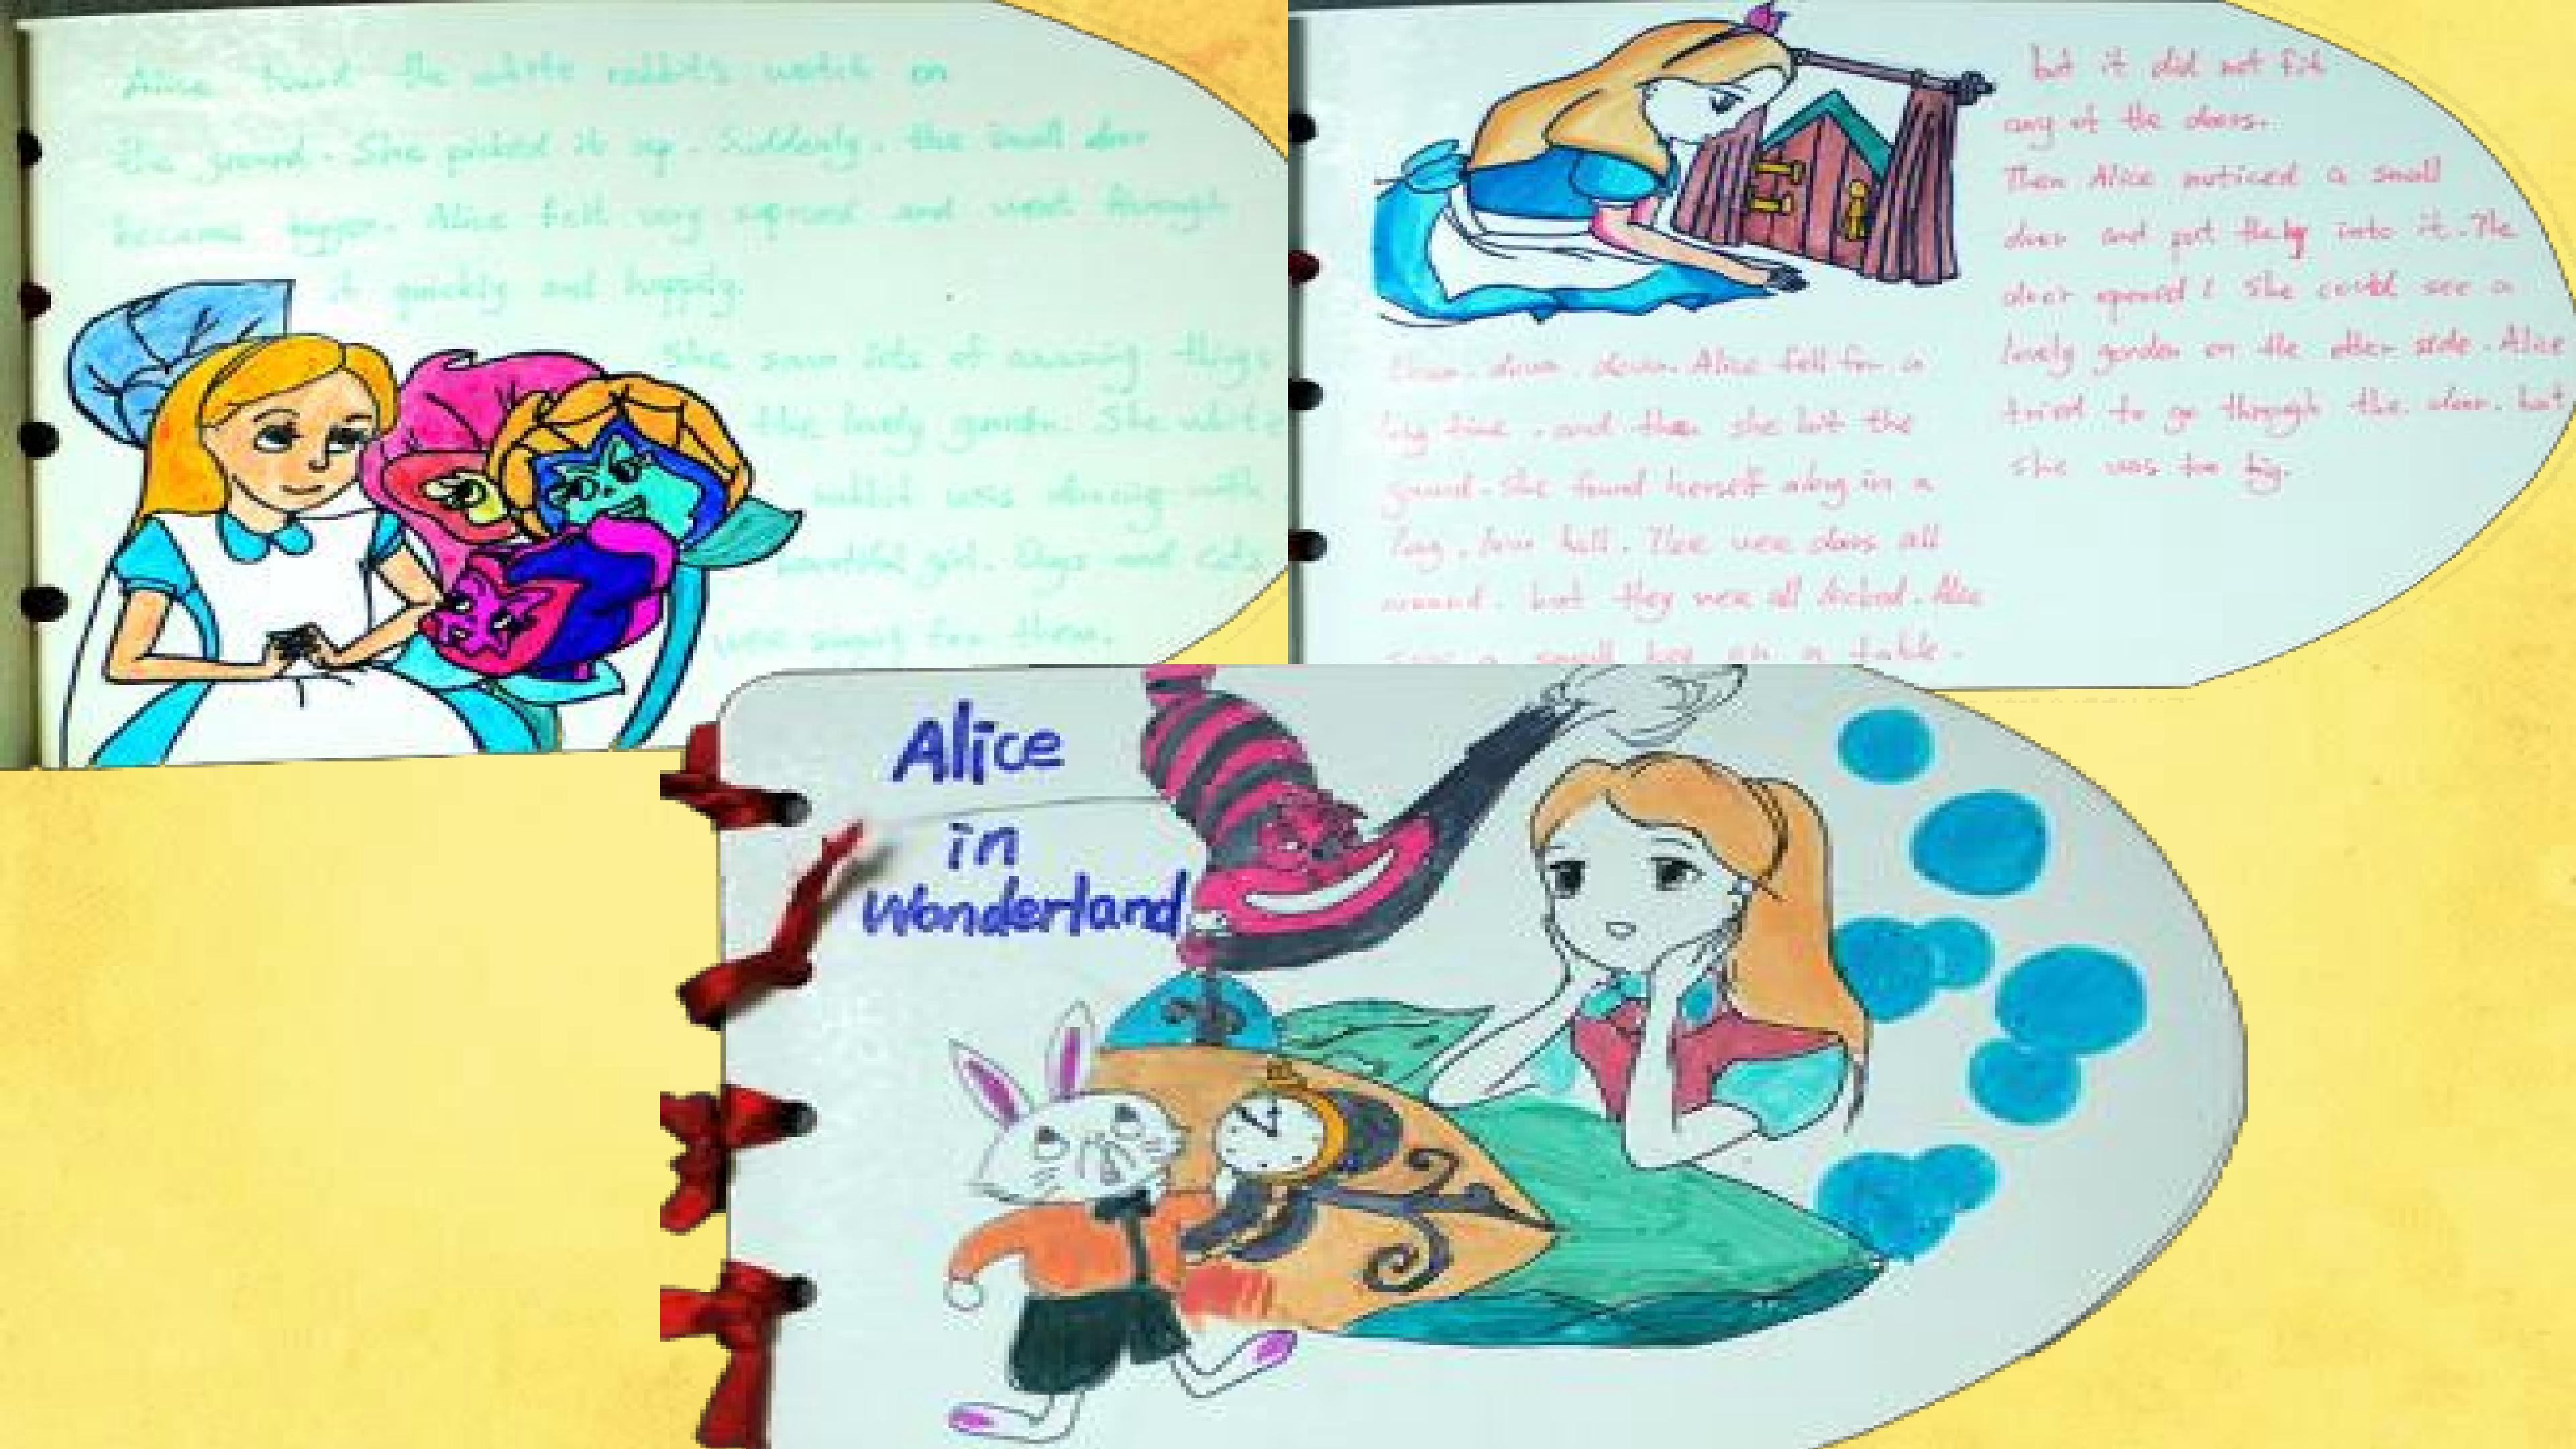 Alice found the white rabbits watch on
the ground. She picked it up. Suddenly. the small door
became bigger. Alice felt very suprised and went through
it quickly and happily.
She saw lots of amazing things
the lovely garden. She white
rabbit was dancing with
beautiful girl. Dogs and cats
were singing for them.
down. down. down. Alice fell for a
long time. and then she hit the
ground. She found herself along in a
long. low hall. There were doors all
around. but they were all locked. Alice
saw a small key on a table.
but it did not fit
any of the doors.
Then Alice noticed a small
door and put the key into it. The
door opened! She could see a
lovely garden on the other side. Alice
tried to go through the door. but
she was too big.
Alice
in
Wonderland